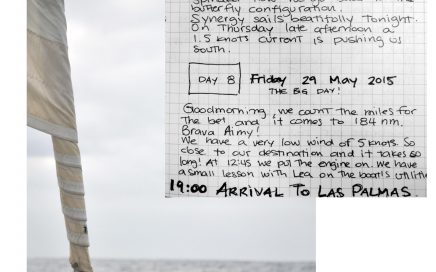 butterfly configuration.
Synergy sails beatifully tonight.
On Thursday late afternoon a
1.5 knots current is pushing us
south.
DAY 8 Friday 29 May 2015
THE BIG DAY!
Goodmorning, we count the miles for
the bet and it comes to 184 nm.
Brava Aimy!
We have a very low wind of 5 knots. So
close to our destination and it takes so
long! At 12:45 we put the engine on. We have
a small lesson with Lea on the boat's utilitie
19:00 ARRIVAL TO LAS PALMAS.